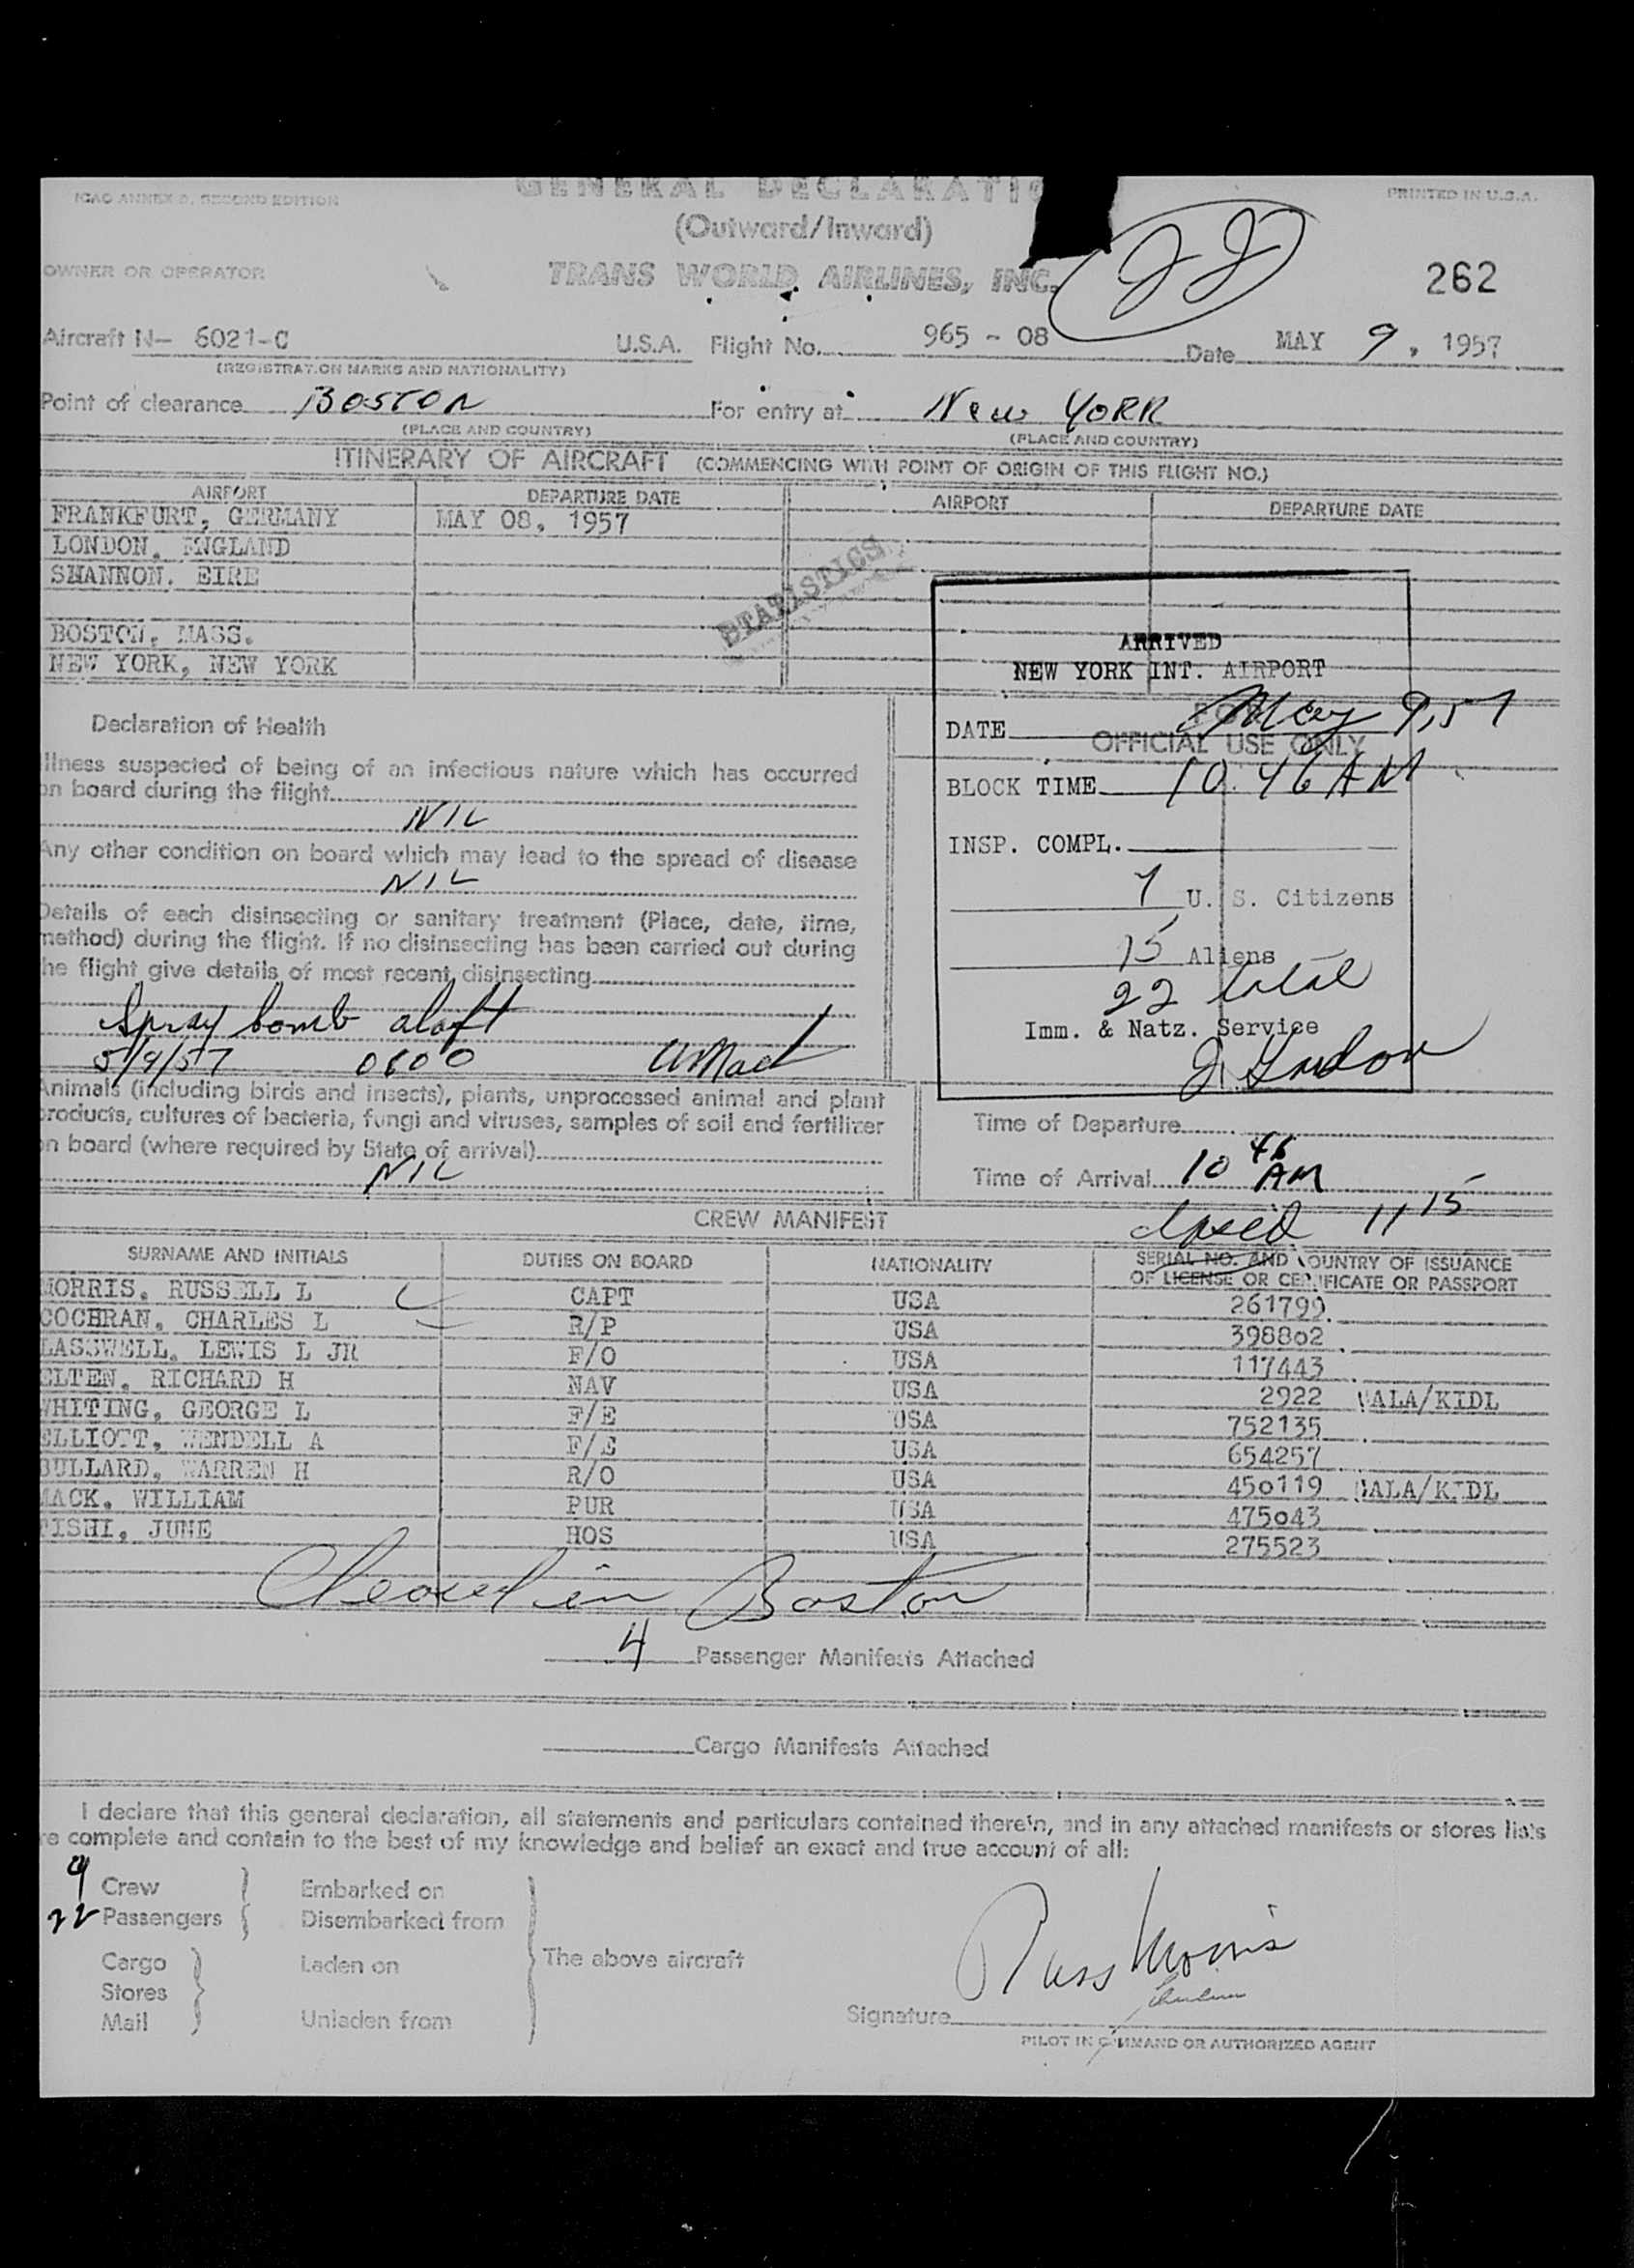 ICAO ANNEX 9, SECOND EDITION
GENERAL DECLARATIO
PRINTED IN U.S.A.
(Outward/Inward)
22
OWNER OR OPERATOR
TRANS WORLD AIRLINES, INC.
262
Aircraft N- 6021-C U.S.A. Flight No. 965 - 08 Date MAY 9, 1957
(REGISTRATION MARKS AND NATIONALITY)
Point of clearance BOSTON For entry at New YORK
(PLACE AND COUNTRY) (PLACE AND COUNTRY)
ITINERARY OF AIRCRAFT (COMMENCING WITH POINT OF ORIGIN OF THIS FLIGHT NO.)
AIRPORT DEPARTURE DATE AIRPORT DEPARTURE DATE
FRANKFURT, GERMANY MAY 08, 1957
LONDON, ENGLAND
SHANNON, EIRE
BOSTON, MASS.
NEW YORK, NEW YORK
STATISTICS
ARRIVED
NEW YORK INT. AIRPORT
FOR
OFFICIAL USE ONLY
DATE May 9, 57
BLOCK TIME 10:46 AM
INSP. COMPL.
7 U. S. Citizens
15 Aliens
22 total
Imm. & Natz. Service
Declaration of Health
Illness suspected of being of an infectious nature which has occurred
on board during the flight
NIL
Any other condition on board which may lead to the spread of disease
NIL
Details of each disinsecting or sanitary treatment (Place, date, time,
method) during the flight. If no disinsecting has been carried out during
the flight give details of most recent disinsecting
Spray bomb aloft
5/9/57 0600 WMack
Animals (including birds and insects), plants, unprocessed animal and plant
products, cultures of bacteria, fungi and viruses, samples of soil and fertilizer
on board (where required by State of arrival)
NIL
Time of Departure
Time of Arrival 10 46 AM
closed 11 15
CREW MANIFEST
SURNAME AND INITIALS DUTIES ON BOARD NATIONALITY SERIAL NO. AND COUNTRY OF ISSUANCE
OF LICENSE OR CERTIFICATE OR PASSPORT
MORRIS, RUSSELL L CAPT USA 261799
COCHRAN, CHARLES L R/P USA 398802
LASSWELL, LEWIS L JR F/O USA 117443
OLTEN, RICHARD H NAV USA 2922 WALA/KIDL
WHITING, GEORGE L F/E USA 752135
ELLIOTT, WENDELL A F/E USA 654257
BULLARD, WARREN H R/O USA 450119 WALA/KIDL
MACK, WILLIAM PUR USA 475043
TISHI, JUNE HOS USA 275523
Cleared in Boston
4 Passenger Manifests Attached
Cargo Manifests Attached
I declare that this general declaration, all statements and particulars contained therein, and in any attached manifests or stores lists
re complete and contain to the best of my knowledge and belief an exact and true account of all:
9 Crew Embarked on
22 Passengers Disembarked from
Cargo Laden on The above aircraft
Stores
Mail Unladen from
Russ Morris
Signature
PILOT IN COMMAND OR AUTHORIZED AGENT